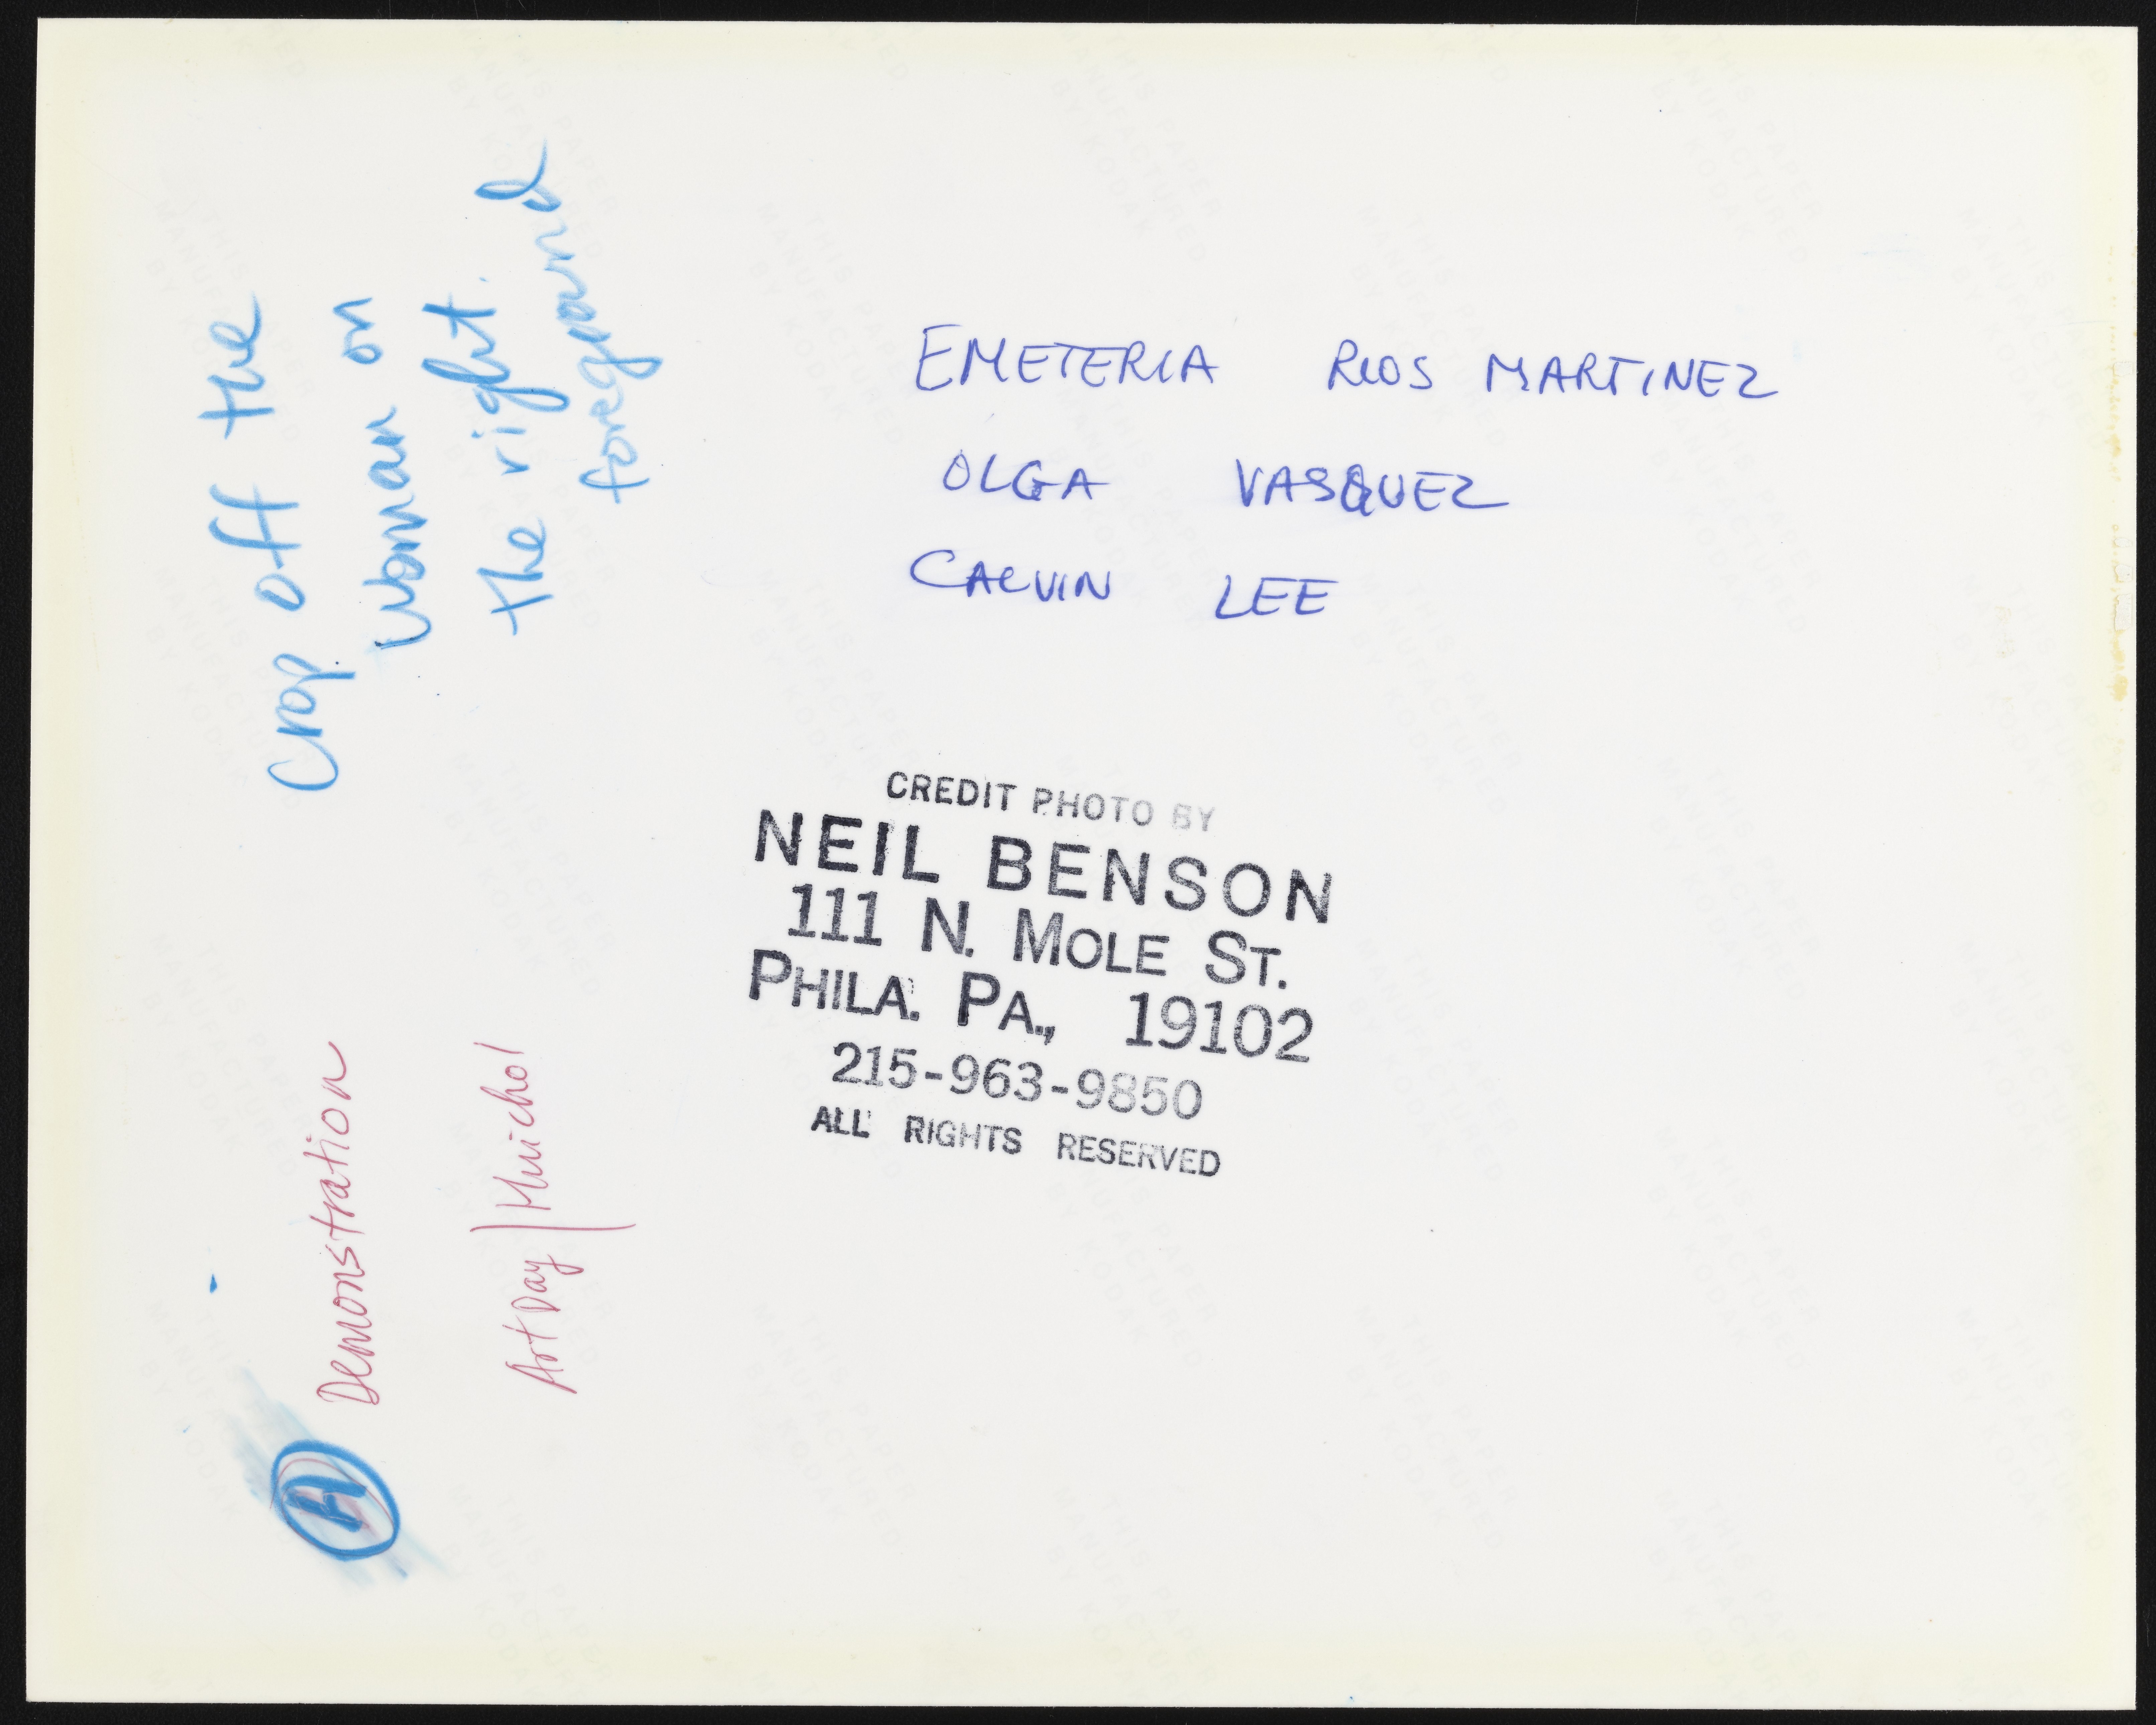 Crop off the
woman on
the right
foreground
EMETERIA RIOS MARTINEZ
OLGA VASQUEZ
CALVIN LEE
CREDIT PHOTO BY
NEIL BENSON
111 N. MOLE ST.
PHILA. PA., 19102
215-963-9850
ALL RIGHTS RESERVED
A Demonstration
Art Day | Huichol
THIS PAPER
MANUFACTURED
BY KODAK